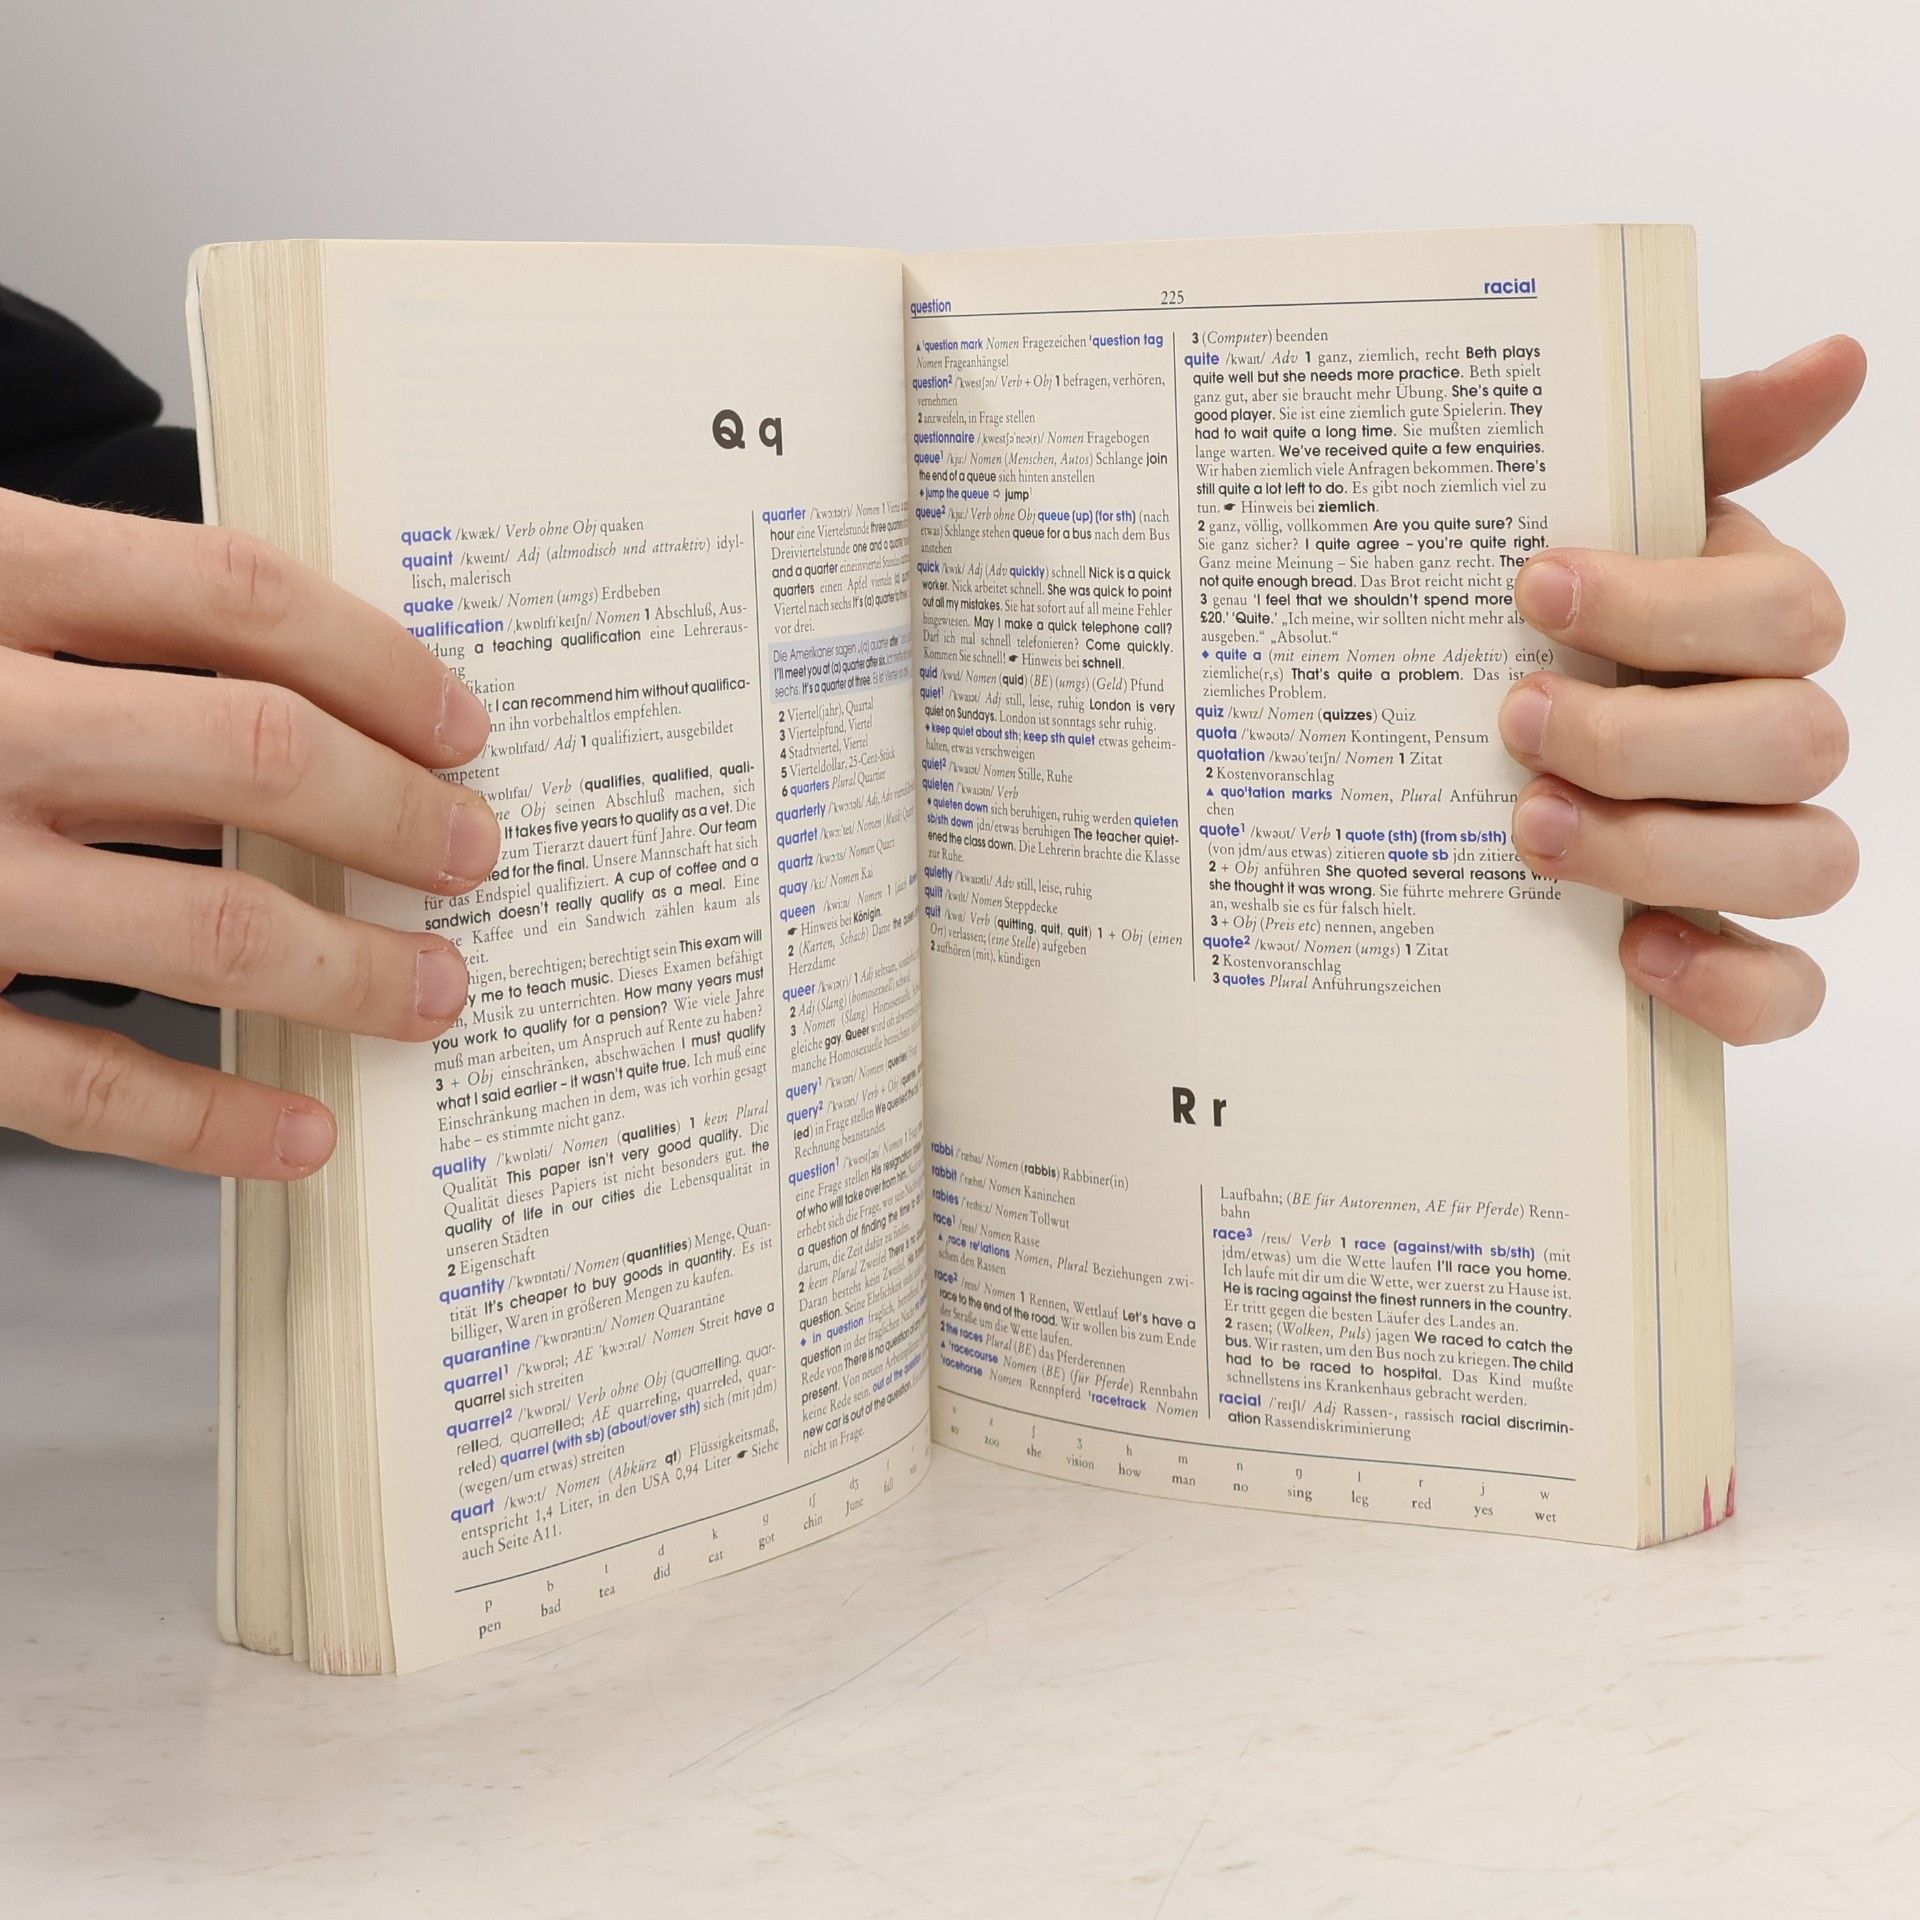 Q q
quack /kwæk/ Verb ohne Obj quaken
quaint /kweɪnt/ Adj (altmodisch und attraktiv) idyl-
lisch, malerisch
quake /kweɪk/ Nomen (umgs) Erdbeben
/ˌkwɒlɪfɪˈkeɪʃn/ Nomen 1 Abschluß, Aus-
a teaching qualification eine Lehreraus-
I can recommend him without qualifica-
ihn vorbehaltlos empfehlen.
/ˈkwɒlɪfaɪd/ Adj 1 qualifiziert, ausgebildet
Verb (qualifies, qualified, quali-
Obj seinen Abschluß machen, sich
It takes five years to qualify as a vet. Die
zum Tierarzt dauert fünf Jahre. Our team
for the final. Unsere Mannschaft hat sich
für das Endspiel qualifiziert. A cup of coffee and a
sandwich doesn't really qualify as a meal. Eine
Kaffee und ein Sandwich zählen kaum als
berechtigen; berechtigt sein This exam will
me to teach music. Dieses Examen befähigt
Musik zu unterrichten. How many years must
you work to qualify for a pension? Wie viele Jahre
muß man arbeiten, um Anspruch auf Rente zu haben?
3 + Obj einschränken, abschwächen I must qualify
what I said earlier – it wasn't quite true. Ich muß eine
Einschränkung machen in dem, was ich vorhin gesagt
habe – es stimmte nicht ganz.
quality /ˈkwɒləti/ Nomen (qualities) 1 kein Plural
Qualität This paper isn't very good quality. Die
Qualität dieses Papiers ist nicht besonders gut. the
quality of life in our cities die Lebensqualität in
unseren Städten
2 Eigenschaft
quantity /ˈkwɒntəti/ Nomen (quantities) Menge, Quan-
tität It's cheaper to buy goods in quantity. Es ist
billiger, Waren in größeren Mengen zu kaufen.
quarantine /ˈkwɒrənti:n/ Nomen Quarantäne
quarrel¹ /ˈkwɒrəl; AE ˈkwɔ:rəl/ Nomen Streit have a
quarrel sich streiten
quarrel² /ˈkwɒrəl/ Verb ohne Obj (quarrelling, quar-
relled, quarrelled; AE quarreling, quarreled, quar-
reled) quarrel (with sb) (about/over sth) sich (mit jdm)
(wegen/um etwas) streiten
quart /kwɔ:t/ Nomen (Abkürz qt) Flüssigkeitsmaß,
entspricht 1,4 Liter, in den USA 0,94 Liter ☛ Siehe
auch Seite A11.
quarter /ˈkwɔ:tə(r)/ Nomen 1
hour eine Viertelstunde
Dreiviertelstunde one and a
and a quarter
quarters einen Apfel vierteln
Viertel nach sechs It's (a) quarter
vor drei.
Die Amerikaner sagen (a) quarter after
I'll meet you at (a) quarter after six.
sechs. It's a quarter of three.
2 Viertel(jahr), Quartal
3 Viertelpfund, Viertel
4 Stadtviertel, Viertel
5 Vierteldollar, 25-Cent-Stück
6 quarters Plural Quartier
quarterly /ˈkwɔ:təli/ Adj, Adv
quartet /kwɔ:ˈtet/ Nomen (Musik)
quartz /kwɔ:ts/ Nomen Quarz
quay /ki:/ Nomen Kai
queen /kwi:n/ Nomen 1
☛ Hinweis bei Königin.
2 (Karten, Schach) Dame the queen
Herzdame
queer /kwɪə(r)/ 1 Adj seltsam,
2 Adj (Slang) (homosexuell) schwul
3 Nomen (Slang) Homosexuelle,
gleiche gay. Queer wird oft
manche Homosexuelle bezeichnen
query¹ /ˈkwɪəri/ Nomen (queries)
query² /ˈkwɪəri/ Verb + Obj
led) in Frage stellen We queried
Rechnung beanstandet.
question¹ /ˈkwestʃən/ Nomen 1
eine Frage stellen His resignation
of who will take over from him.
erhebt sich die Frage,
a question of finding the time
darum, die Zeit dafür zu finden.
2 kein Plural Zweifel There is no
Daran besteht kein Zweifel.
question. Seine Ehrlichkeit
◆ in question fraglich,
question in der fraglichen Nacht
Rede von There is no question of
present. Von neuen
keine Rede sein. out of the question
new car is out of the question.
nicht in Frage.
p b t d k g tʃ dʒ f
pen bad tea did cat got chin June fall
question 225 racial
▲ ˈquestion mark Nomen Fragezeichen ˈquestion tag
Nomen Frageanhängsel
question² /ˈkwestʃən/ Verb + Obj 1 befragen, verhören,
vernehmen
2 anzweifeln, in Frage stellen
questionnaire /ˌkwestʃəˈneə(r)/ Nomen Fragebogen
queue¹ /kju:/ Nomen (Menschen, Autos) Schlange join
the end of a queue sich hinten anstellen
◆ jump the queue ⇨ jump¹
queue² /kju:/ Verb ohne Obj queue (up) (for sth) (nach
etwas) Schlange stehen queue for a bus nach dem Bus
anstehen
quick /kwɪk/ Adj (Adv quickly) schnell Nick is a quick
worker. Nick arbeitet schnell. She was quick to point
out all my mistakes. Sie hat sofort auf all meine Fehler
hingewiesen. May I make a quick telephone call?
Darf ich mal schnell telefonieren? Come quickly.
Kommen Sie schnell! ☛ Hinweis bei schnell.
quid /kwɪd/ Nomen (quid) (BE) (umgs) (Geld) Pfund
quiet¹ /ˈkwaɪət/ Adj still, leise, ruhig London is very
quiet on Sundays. London ist sonntags sehr ruhig.
◆ keep quiet about sth; keep sth quiet etwas geheim-
halten, etwas verschweigen
quiet² /ˈkwaɪət/ Nomen Stille, Ruhe
quieten /ˈkwaɪətn/ Verb
◆ quieten down sich beruhigen, ruhig werden quieten
sb/sth down jdn/etwas beruhigen The teacher quiet-
ened the class down. Die Lehrerin brachte die Klasse
zur Ruhe.
quietly /ˈkwaɪətli/ Adv still, leise, ruhig
quilt /kwɪlt/ Nomen Steppdecke
quit /kwɪt/ Verb (quitting, quit, quit) 1 + Obj (einen
Ort) verlassen; (eine Stelle) aufgeben
2 aufhören (mit), kündigen
3 (Computer) beenden
quite /kwaɪt/ Adv 1 ganz, ziemlich, recht Beth plays
quite well but she needs more practice. Beth spielt
ganz gut, aber sie braucht mehr Übung. She's quite a
good player. Sie ist eine ziemlich gute Spielerin. They
had to wait quite a long time. Sie mußten ziemlich
lange warten. We've received quite a few enquiries.
Wir haben ziemlich viele Anfragen bekommen. There's
still quite a lot left to do. Es gibt noch ziemlich viel zu
tun. ☛ Hinweis bei ziemlich.
2 ganz, völlig, vollkommen Are you quite sure? Sind
Sie ganz sicher? I quite agree – you're quite right.
Ganz meine Meinung – Sie haben ganz recht.
not quite enough bread. Das Brot reicht nicht
3 genau ‘I feel that we shouldn't spend more
£20.’ ‘Quite.’ „Ich meine, wir sollten nicht mehr als
ausgeben.“ „Absolut.“
◆ quite a (mit einem Nomen ohne Adjektiv) ein(e)
ziemliche(r,s) That's quite a problem. Das ist
ziemliches Problem.
quiz /kwɪz/ Nomen (quizzes) Quiz
quota /ˈkwəʊtə/ Nomen Kontingent, Pensum
quotation /kwəʊˈteɪʃn/ Nomen 1 Zitat
2 Kostenvoranschlag
▲ quoˈtation marks Nomen, Plural Anführun
chen
quote¹ /kwəʊt/ Verb 1 quote (sth) (from sb/sth)
(von jdm/aus etwas) zitieren quote sb jdn
2 + Obj anführen She quoted several reasons why
she thought it was wrong. Sie führte mehrere Gründe
an, weshalb sie es für falsch hielt.
3 + Obj (Preis etc) nennen, angeben
quote² /kwəʊt/ Nomen (umgs) 1 Zitat
2 Kostenvoranschlag
3 quotes Plural Anführungszeichen
R r
rabbi /ˈræbaɪ/ Nomen (rabbis) Rabbiner(in)
rabbit /ˈræbɪt/ Nomen Kaninchen
rabies /ˈreɪbi:z/ Nomen Tollwut
race¹ /reɪs/ Nomen Rasse
▲ ˌrace reˈlations Nomen, Plural Beziehungen zwi-
schen den Rassen
race² /reɪs/ Nomen 1 Rennen, Wettlauf Let's have a
race to the end of the road. Wir wollen bis zum Ende
der Straße um die Wette laufen.
2 the races Plural (BE) das Pferderennen
▲ ˈracecourse Nomen (BE) (für Pferde) Rennbahn
ˈracehorse Nomen Rennpferd ˈracetrack Nomen
Laufbahn; (BE für Autorennen, AE für Pferde) Renn-
bahn
race³ /reɪs/ Verb 1 race (against/with sb/sth) (mit
jdm/etwas) um die Wette laufen I'll race you home.
Ich laufe mit dir um die Wette, wer zuerst zu Hause ist.
He is racing against the finest runners in the country.
Er tritt gegen die besten Läufer des Landes an.
2 rasen; (Wolken, Puls) jagen We raced to catch the
bus. Wir rasten, um den Bus noch zu kriegen. The child
had to be raced to hospital. Das Kind mußte
schnellstens ins Krankenhaus gebracht werden.
racial /ˈreɪʃl/ Adj Rassen-, rassisch racial discrimin-
ation Rassendiskriminierung
s z ʃ ʒ h m n ŋ l r j w
so zoo she vision how man no sing leg red yes wet